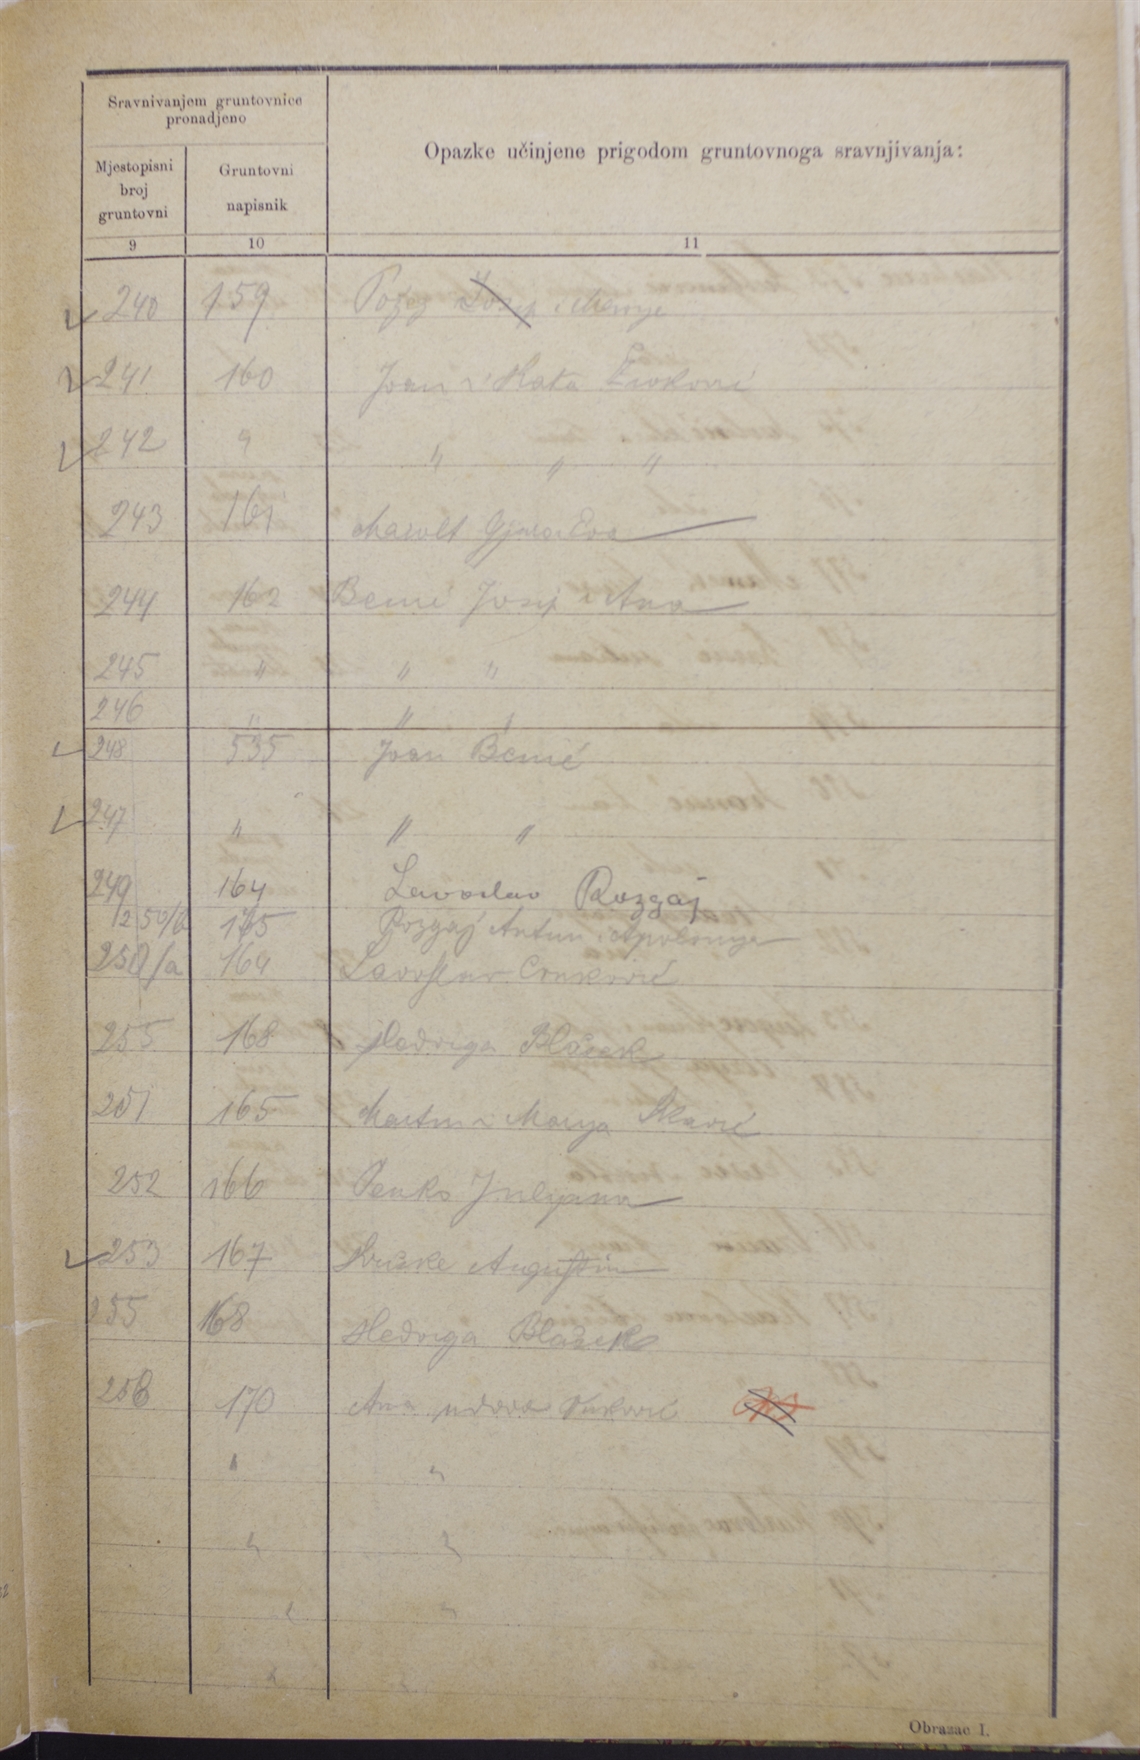 Sravnivanjem gruntovnice
pronadjeno
Opazke učinjene prigodom gruntovnoga sravnjivanja:
Mjestopisni
broj
gruntovni
Gruntovni
napisnik
9 10 11
240 159 Požeg Josip i Marija
241 160 Joan i Kata
242 " " " "
243 161 Marolt Gjuro Eva
244 162 Benić Josip i Ana
245 " " "
246 " " "
248 535 Joan Benić
247 " " "
249 164 Lavoslav Rozgaj
250/b 165 Rozgaj Antun i Apolonija
250/a 164 Lavoslav
255 168 Hedviga Blažek
251 165 Martin i Marija
252 166 Penko Julijana
253 167 Augustin
255 168 Hedviga Blažek
256 170 Ana udova
" "
" "
" "
" "
Obrazac I.